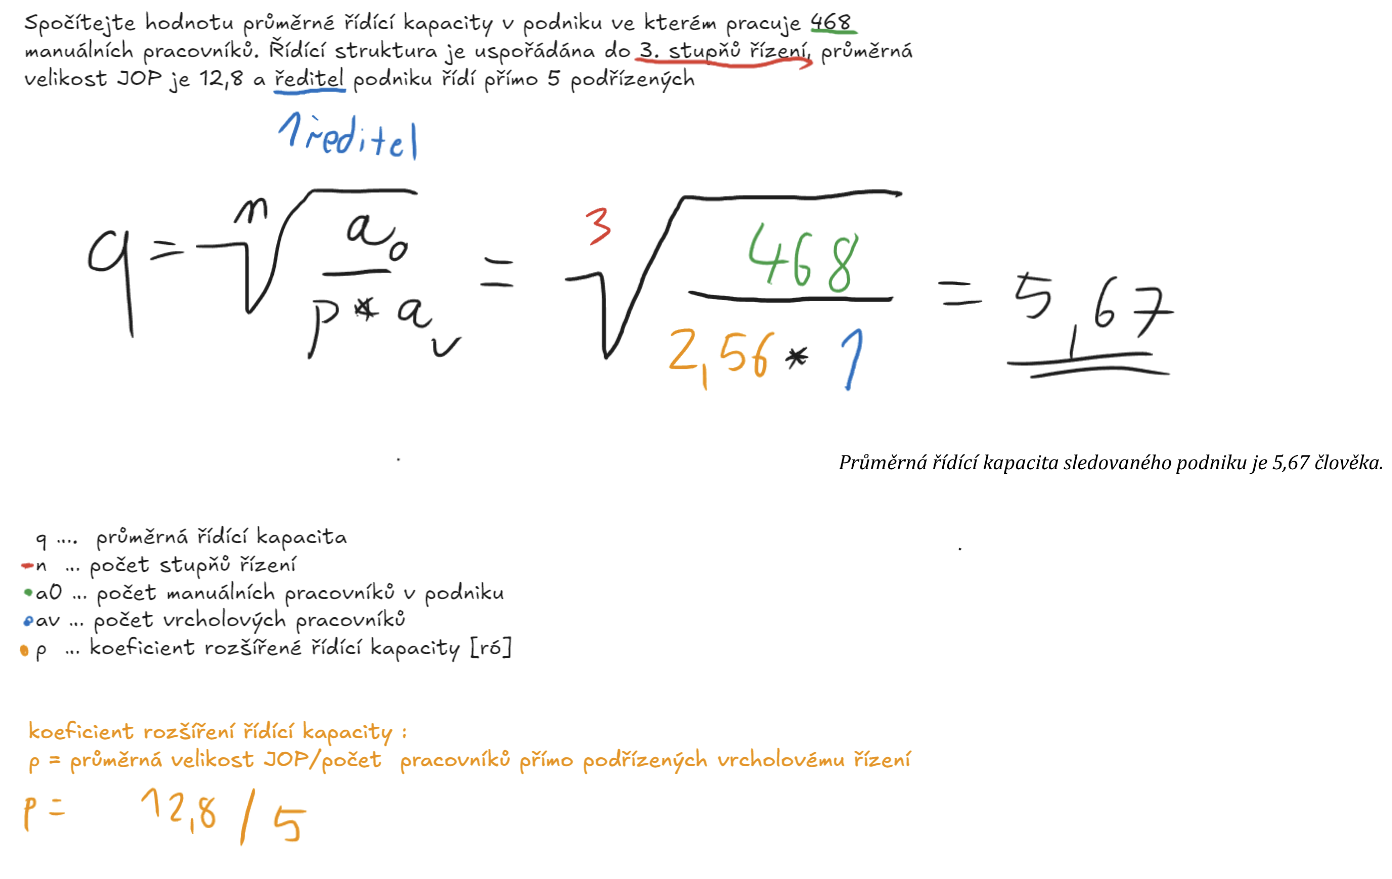 Spočítejte hodnotu průměrné řídící kapacity v podniku ve kterém pracuje 468
manuálních pracovníků. Řídící struktura je uspořádána do 3. stupňů řízení, průměrná
velikost JOP je 12,8 a ředitel podniku řídí přímo 5 podřízených
1 ředitel
q = n√(a₀ / (ρ * aᵥ)) = 3√(468 / (2,56 * 1)) = 5,67
Průměrná řídící kapacita sledovaného podniku je 5,67 člověka.
q .... průměrná řídící kapacita
n ... počet stupňů řízení
a0 ... počet manuálních pracovníků v podniku
av ... počet vrcholových pracovníků
ρ ... koeficient rozšířené řídící kapacity [ró]
koeficient rozšíření řídící kapacity :
ρ = průměrná velikost JOP/počet pracovníků přímo podřízených vrcholovému řízení
ρ = 12,8 / 5